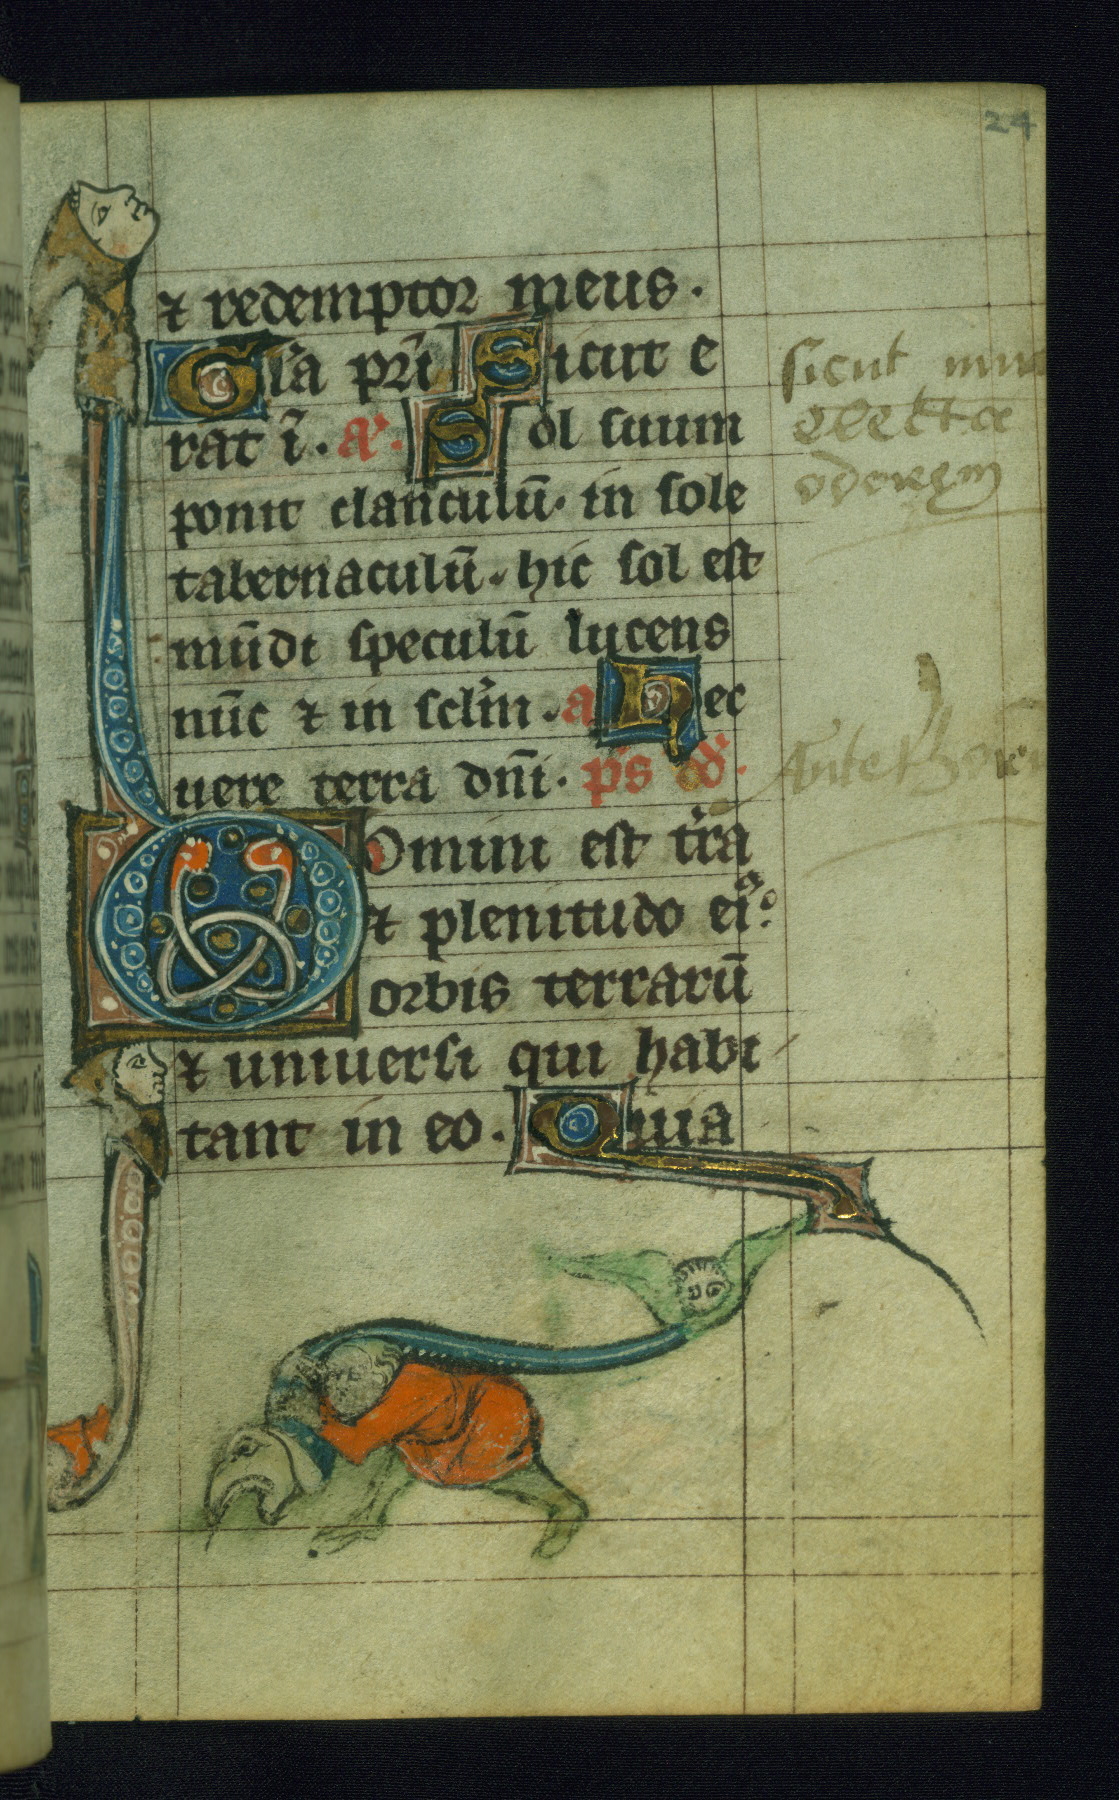 24
⁊ redemptor meus.
Gl'ia pr̃i Sicut e
rat ĩ. añ. Sol suum
ponit clanculũ. in sole
tabernaculũ. hic sol est
mũdi speculũ lucens
nũc ⁊ in sclm̃. a Hec
uere terra dñi. p̃s dd̃.
Domini est tr̃a
⁊ plenitudo eiꝰ
orbis terrarũ
⁊ uniuersi qui habi
tant in eo. Quia
sicut
electa
odorem
Ante